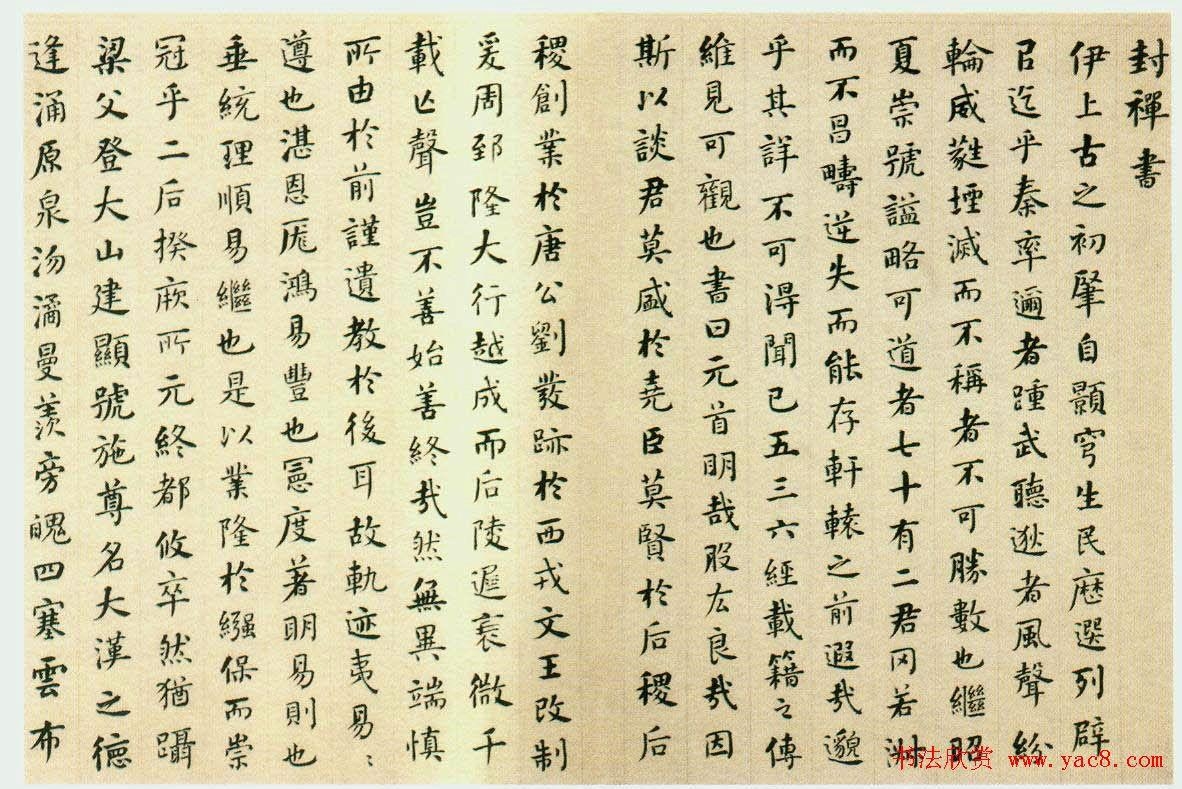 封禪書
伊上古之初肇自顥穹生民歷選列辟
㠯迄乎秦率邇者踵武聽逖者風聲紛
輪威蕤堙滅而不稱者不可勝數也繼昭
夏崇號謚略可道者七十有二君罔若淑
而不昌疇逆失而能存軒轅之前遐㦲邈
乎其詳不可得聞已五三六經載籍之傳
維見可觀也書曰元首明哉股厷良㦲因
斯以談君莫盛於堯臣莫賢於后稷后
稷創業於唐公劉發跡於西戎文王改制
爰周郅隆大行越成而后陵遲衰微千
載亡聲豈不善始善終㦲然無異端慎
所由於前謹遺教於後耳故軌迹夷易〻
遵也湛恩厖鴻易豐也憲度著明易則也
垂統理順易繼也是以業隆於繈保而崇
冠乎二后揆厥所元終都攸卒然猶躡
梁父登大山建顯號施尊名大漢之德
逢涌原泉沕潏曼羨旁魄四塞雲布
书法欣赏 www.yac8.com